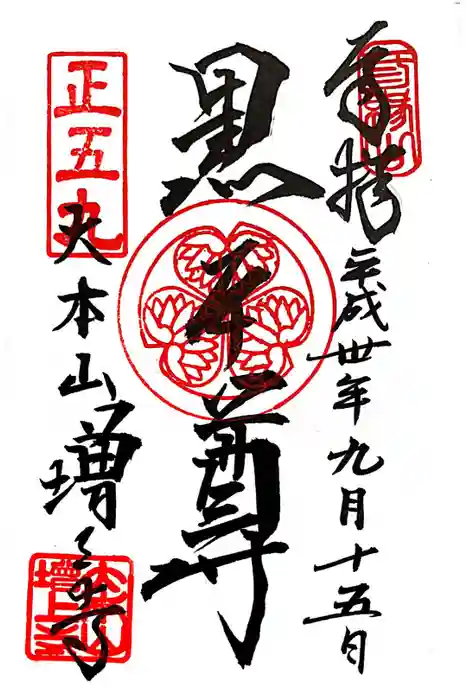 奉拝
平成卅年九月十五日
黒本尊
正五九
大本山増上寺